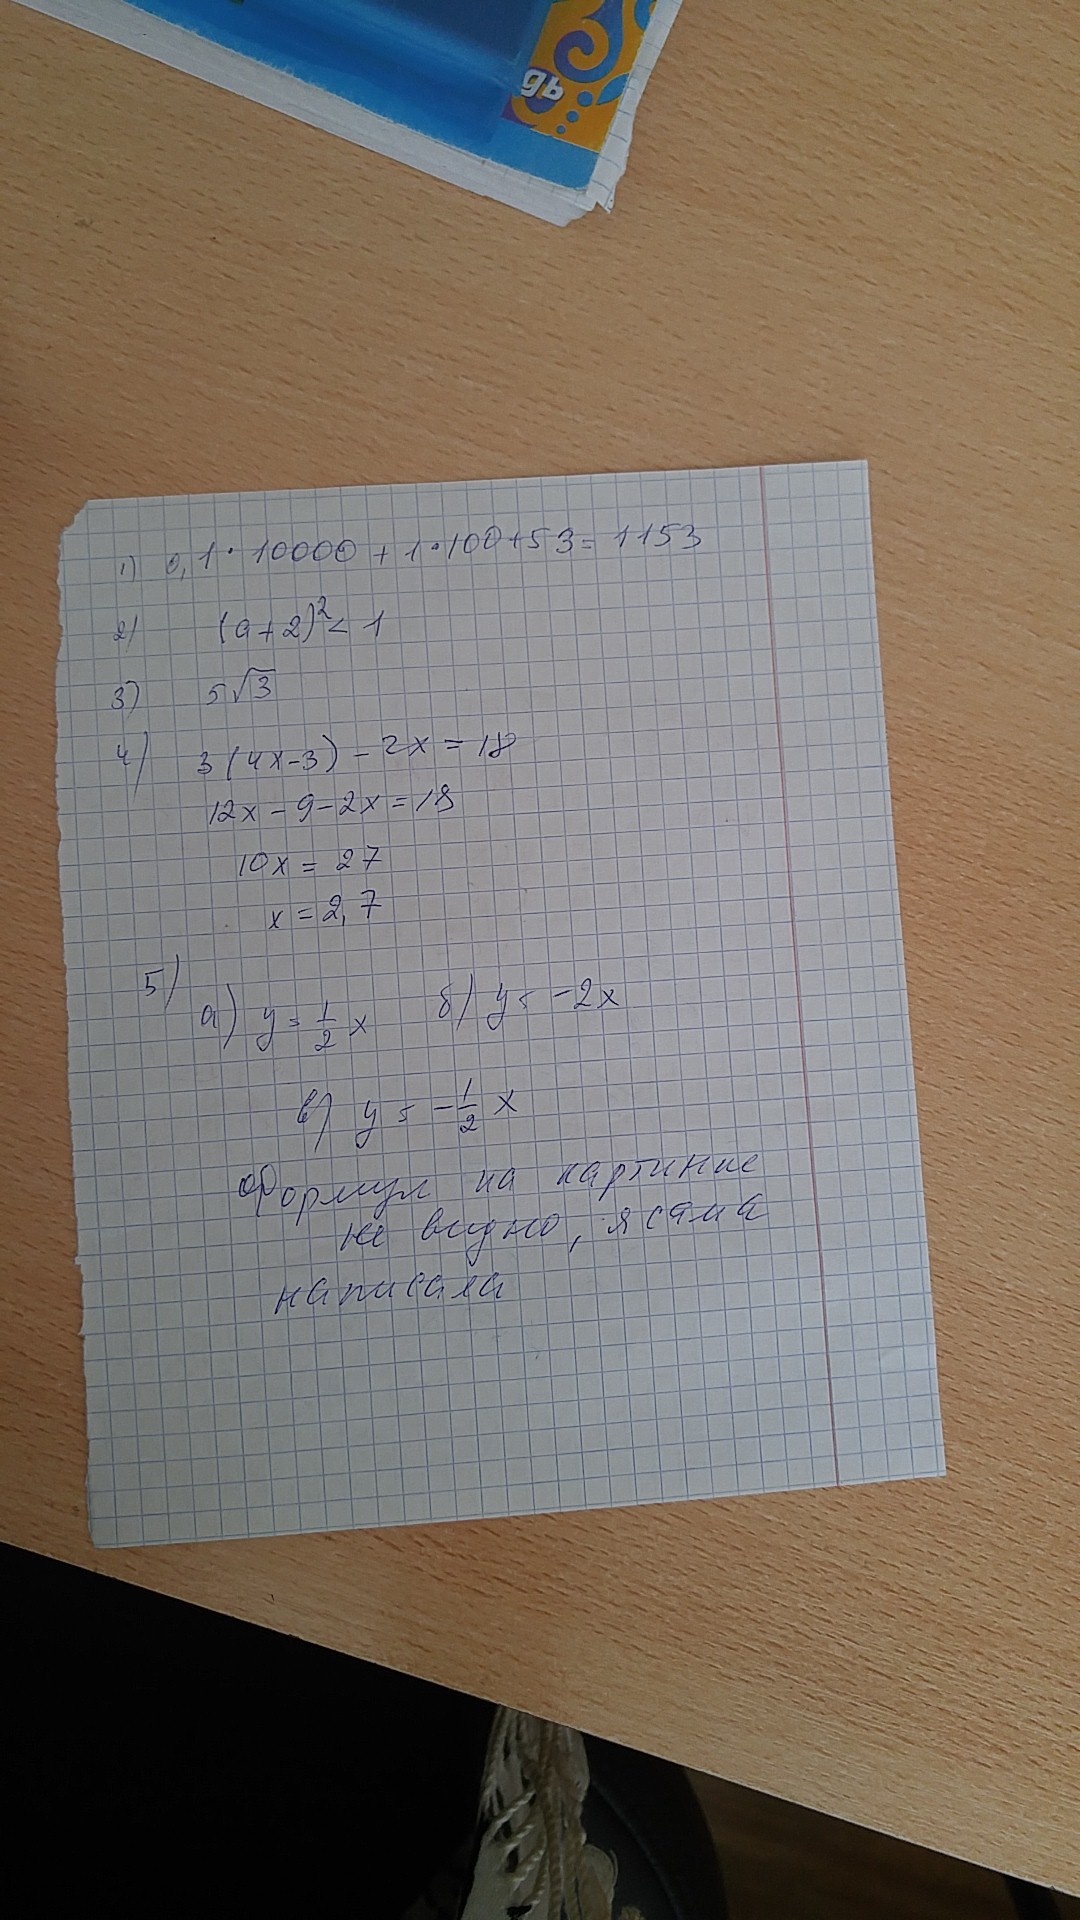 дь
1) 0,1·10000 + 1·100+53 = 1153
2) (a+2)² < 1
3) 5√3
4) 3(4x-3) - 2x = 18
12x - 9 - 2x = 18
10x = 27
x = 2,7
5)
а) y = 1/2 x б) y = -2x
в) y = -1/2 x
Формул на картинке
не видно, я сама
написала